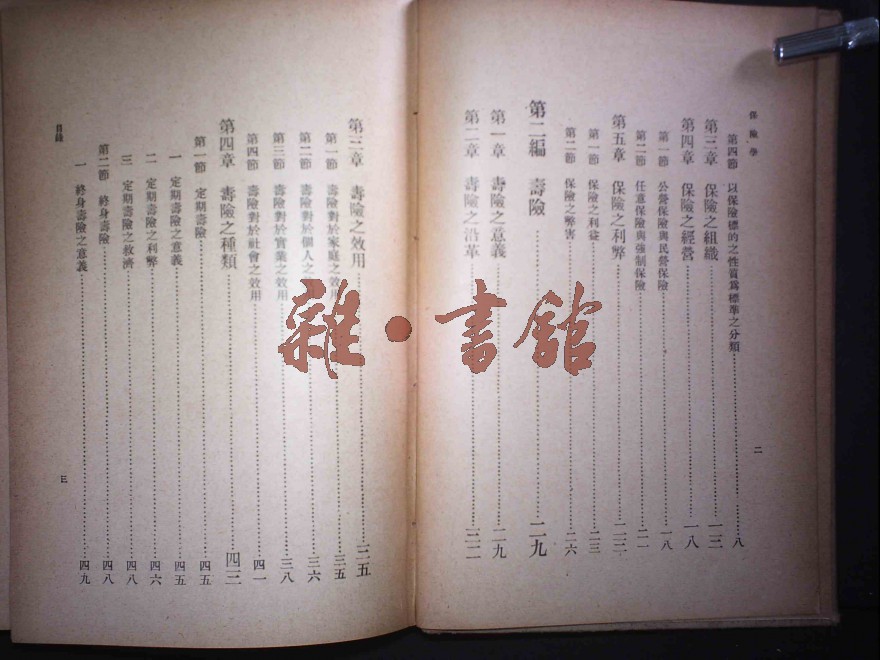 保險學
第四節 以保險標的之性質爲標準之分類 八
第三章 保險之組織 一三
第四章 保險之經營 一八
第一節 公營保險與民營保險 一八
第二節 任意保險與強制保險 二一
第五章 保險之利弊 二三
第一節 保險之利益 二三
第二節 保險之弊害 二六
第二編 壽險 二九
第一章 壽險之意義 二九
第二章 壽險之沿革 三二
二
第三章 壽險之效用 三五
第一節 壽險對於家庭之效用 三五
第二節 壽險對於個人之 三六
第三節 壽險對於實業之效用 三八
第四節 壽險對於社會之效用 四一
第四章 壽險之種類 四三
第一節 定期壽險 四五
一 定期壽險之意義 四五
二 定期壽險之利弊 四六
三 定期壽險之救濟 四八
第二節 終身壽險 四八
一 終身壽險之意義 四九
目錄
三
雜·書館